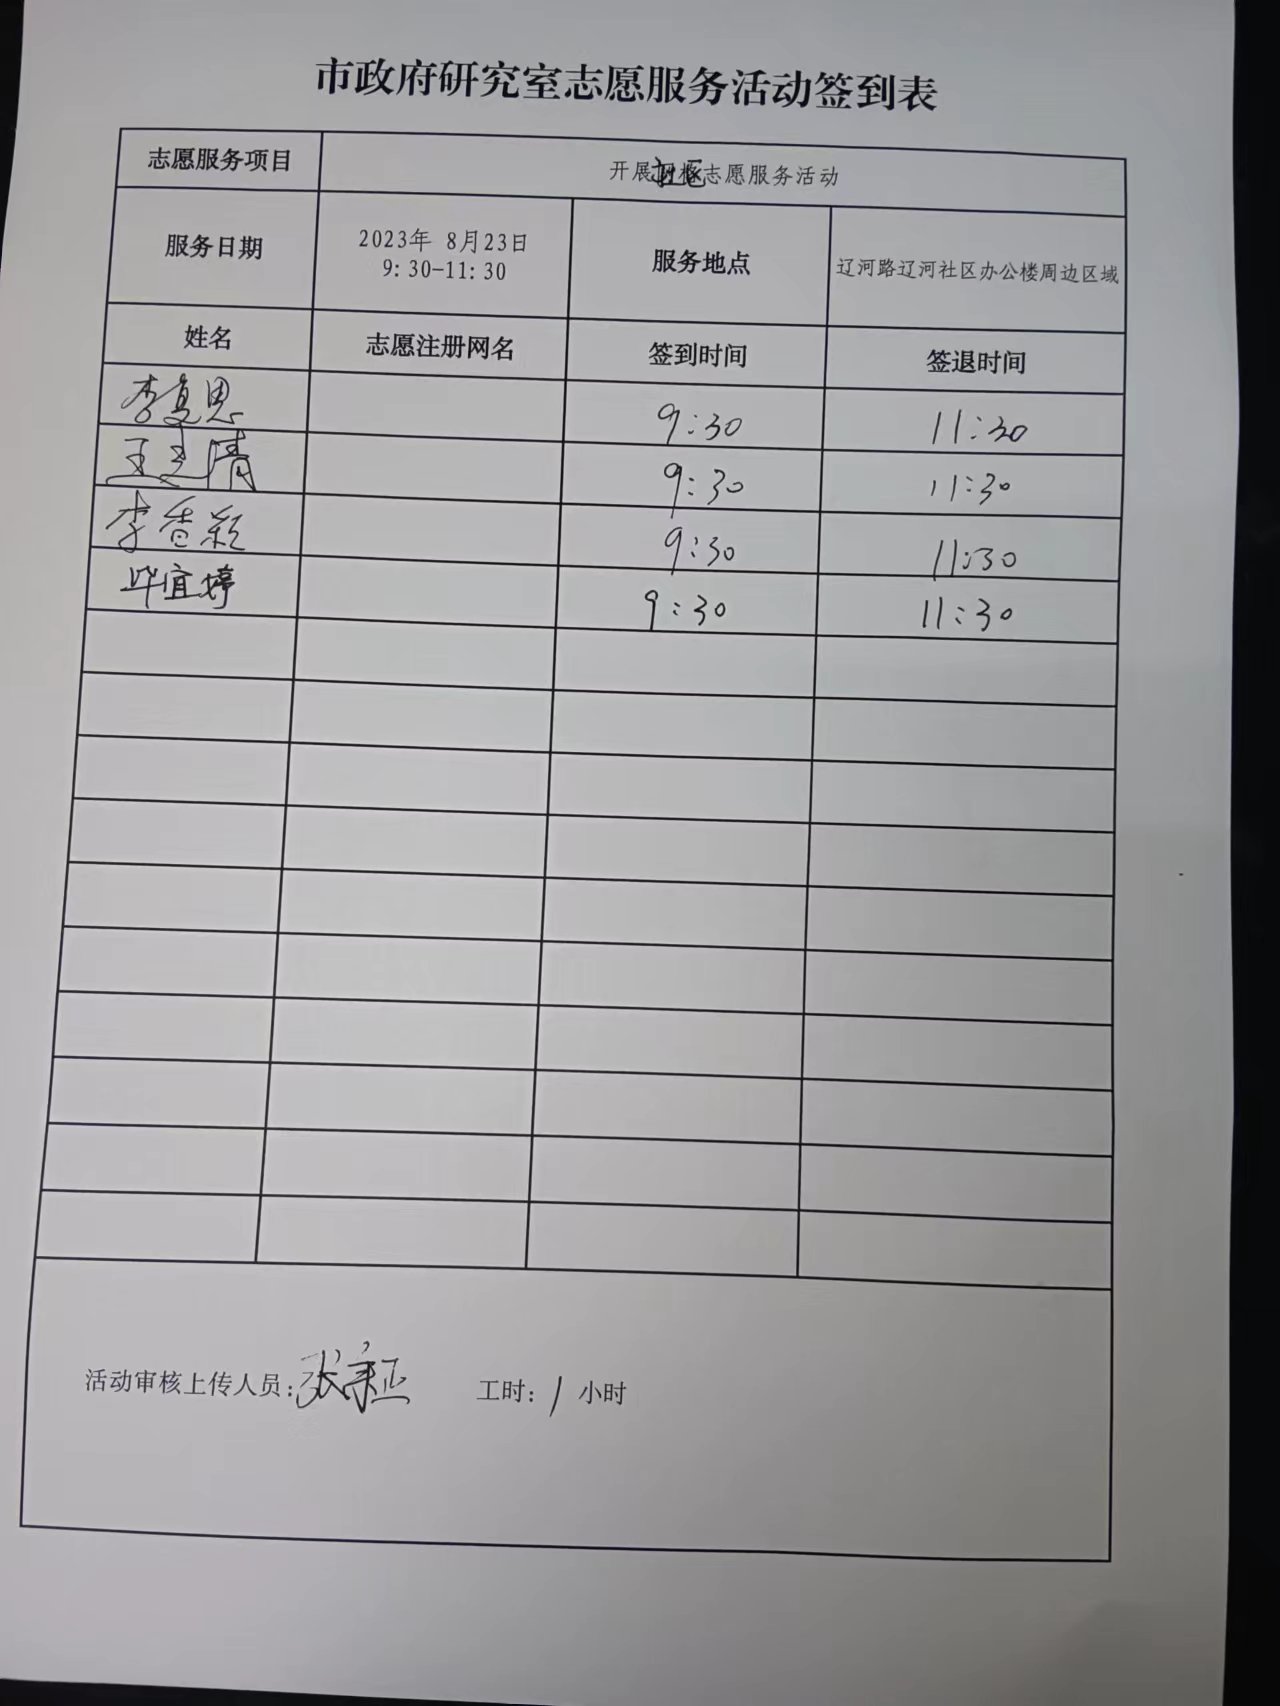 市政府研究室志愿服务活动签到表
志愿服务项目 开展社区志愿服务活动
服务日期 2023年 8月23日 9:30-11:30 服务地点 辽河路辽河社区办公楼周边区域
姓名 志愿注册网名 签到时间 签退时间
李复思 9:30 11:30
王志清 9:30 11:30
李香颖 9:30 11:30
毕宜婷 9:30 11:30
活动审核上传人员: 张 工时: 1 小时